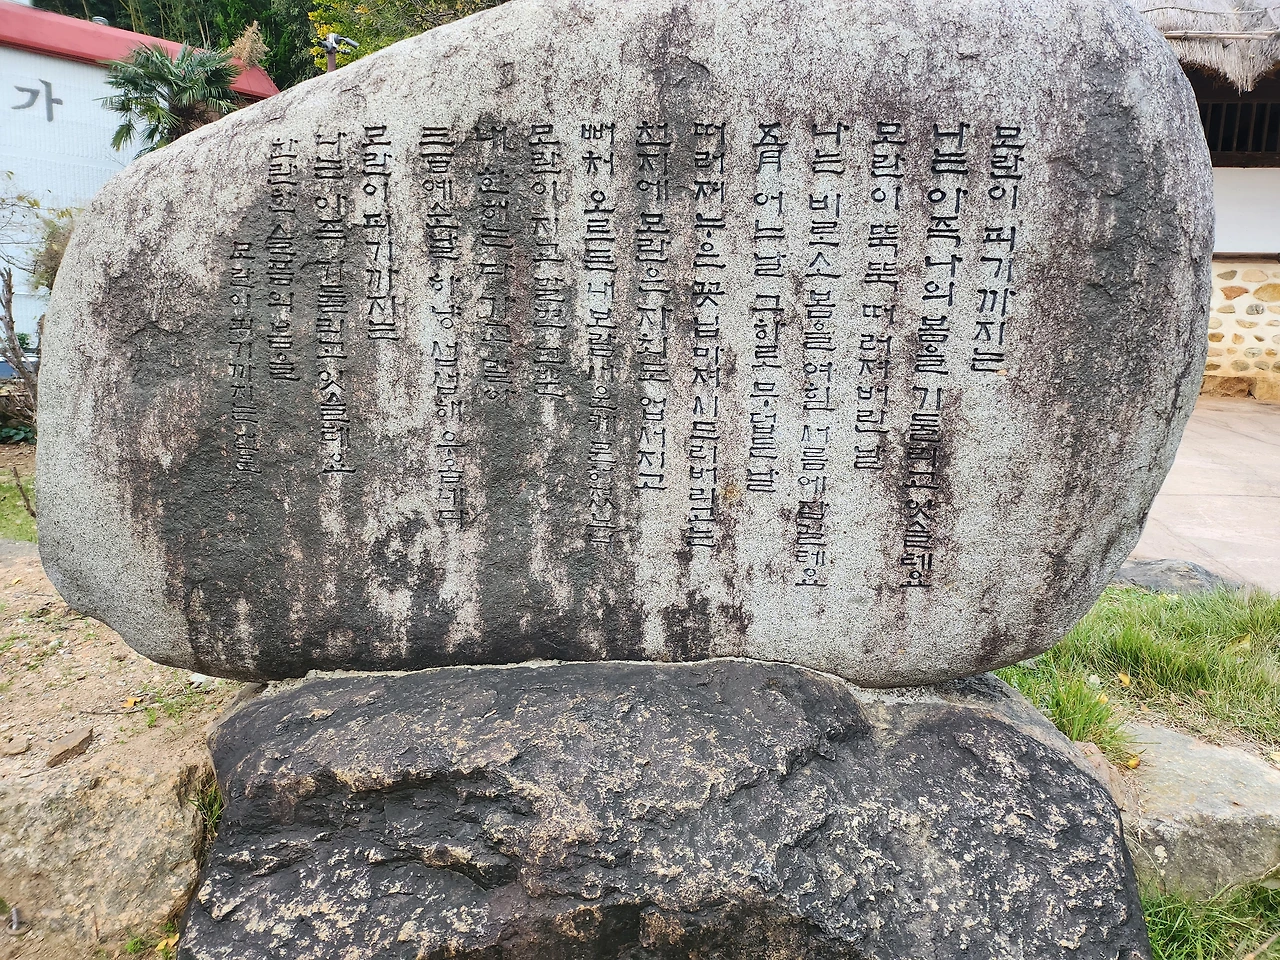 가
모란이 피기까지는
나는 아즉 나의 봄을 기둘리고 잇슬테요
모란이 뚝뚝 떠러져버린날
나는 비로소 봄을 여흰 서름에 잠길테요
五月 어느날 그하로 무덥든날
떠러져누은 꽃닙마져 시드러버리고는
천지에 모란은 자최도 업서지고
뻐처 오르든 내 보람 서운케 문허졌느니
모란이 지고말면 그뿐
내 한해는 다 가고말아
三百예순날 하냥 섭섭해 우옵내다
모란이 피기까지는
나는 아즉 기둘리고 잇슬테요
찬란한 슬픔의 봄을
모란이 피기까지는